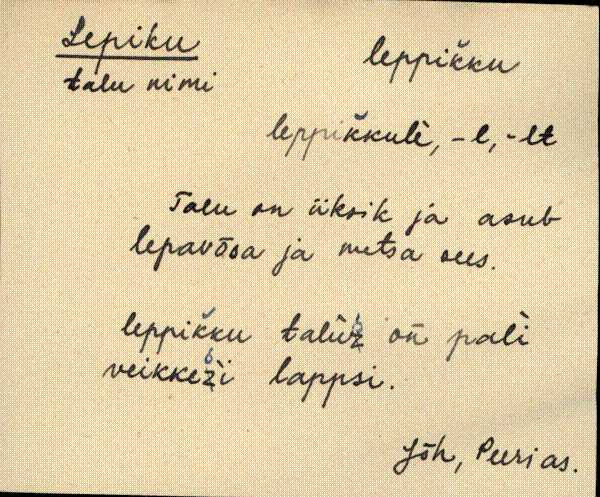 Lepiku
talu nimi
leppikku
leppikkulè, -l, -lt
Talu on üksik ja asub
lepavõsa ja metsa sees.
leppikku talùz on̄ palì
veikkeži lappsi.
Jõh, Peerias.